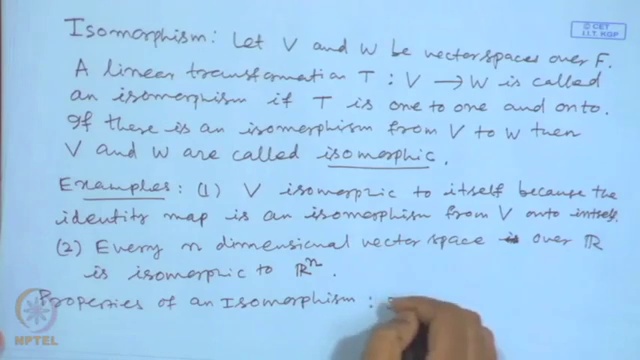 © CET
I.I.T. KGP
Isomorphism: Let V and W be vector spaces over F.
A linear transformation T: V → W is called
an isomorphism if T is one to one and onto.
If there is an isomorphism from V to W then
V and W are called isomorphic.
Examples: (1) V isomorphic to itself because the
identity map is an isomorphism from V onto intself.
(2) Every n dimensional vector space over ℝ
is isomorphic to ℝⁿ.
Properties of an Isomorphism:
NPTEL